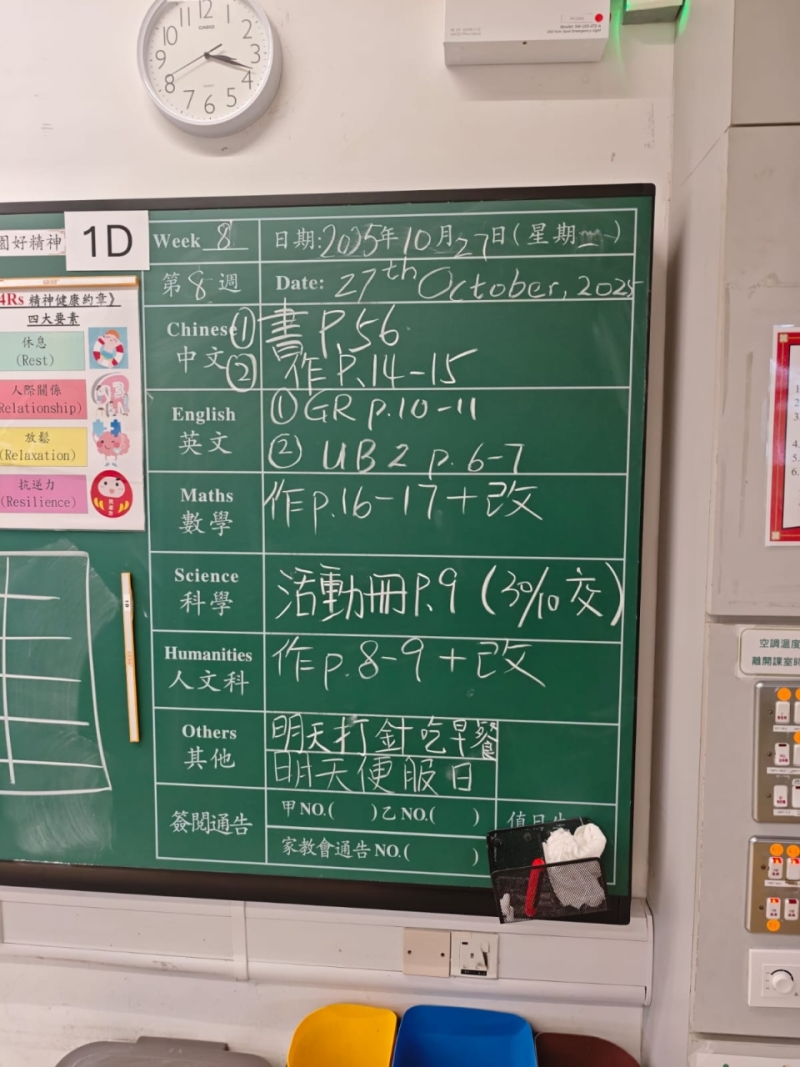 12
11
1
10
2
9
3
8
4
7
6
5
CASIO
園好精神
1D
Week 8
日期:2025年10月27日(星期一)
第8週
Date: 27th October, 2025
4Rs 精神健康約章》
四大要素
休息
(Rest)
人際關係
(Relationship)
放鬆
(Relaxation)
抗逆力
(Resilience)
Chinese
中文
①書 P.56
②作 P.14-15
English
英文
①GR p.10-11
② UB2 p.6-7
Maths
數學
作p.16-17+改
Science
科學
活動冊P.9 (30/10交)
Humanities
人文科
作p.8-9+改
Others
其他
明天打針吃早餐
明天便服日
簽閱通告
甲NO.( )乙NO.( )
家教會通告NO.( )
值日生
空調溫度
離開課室時